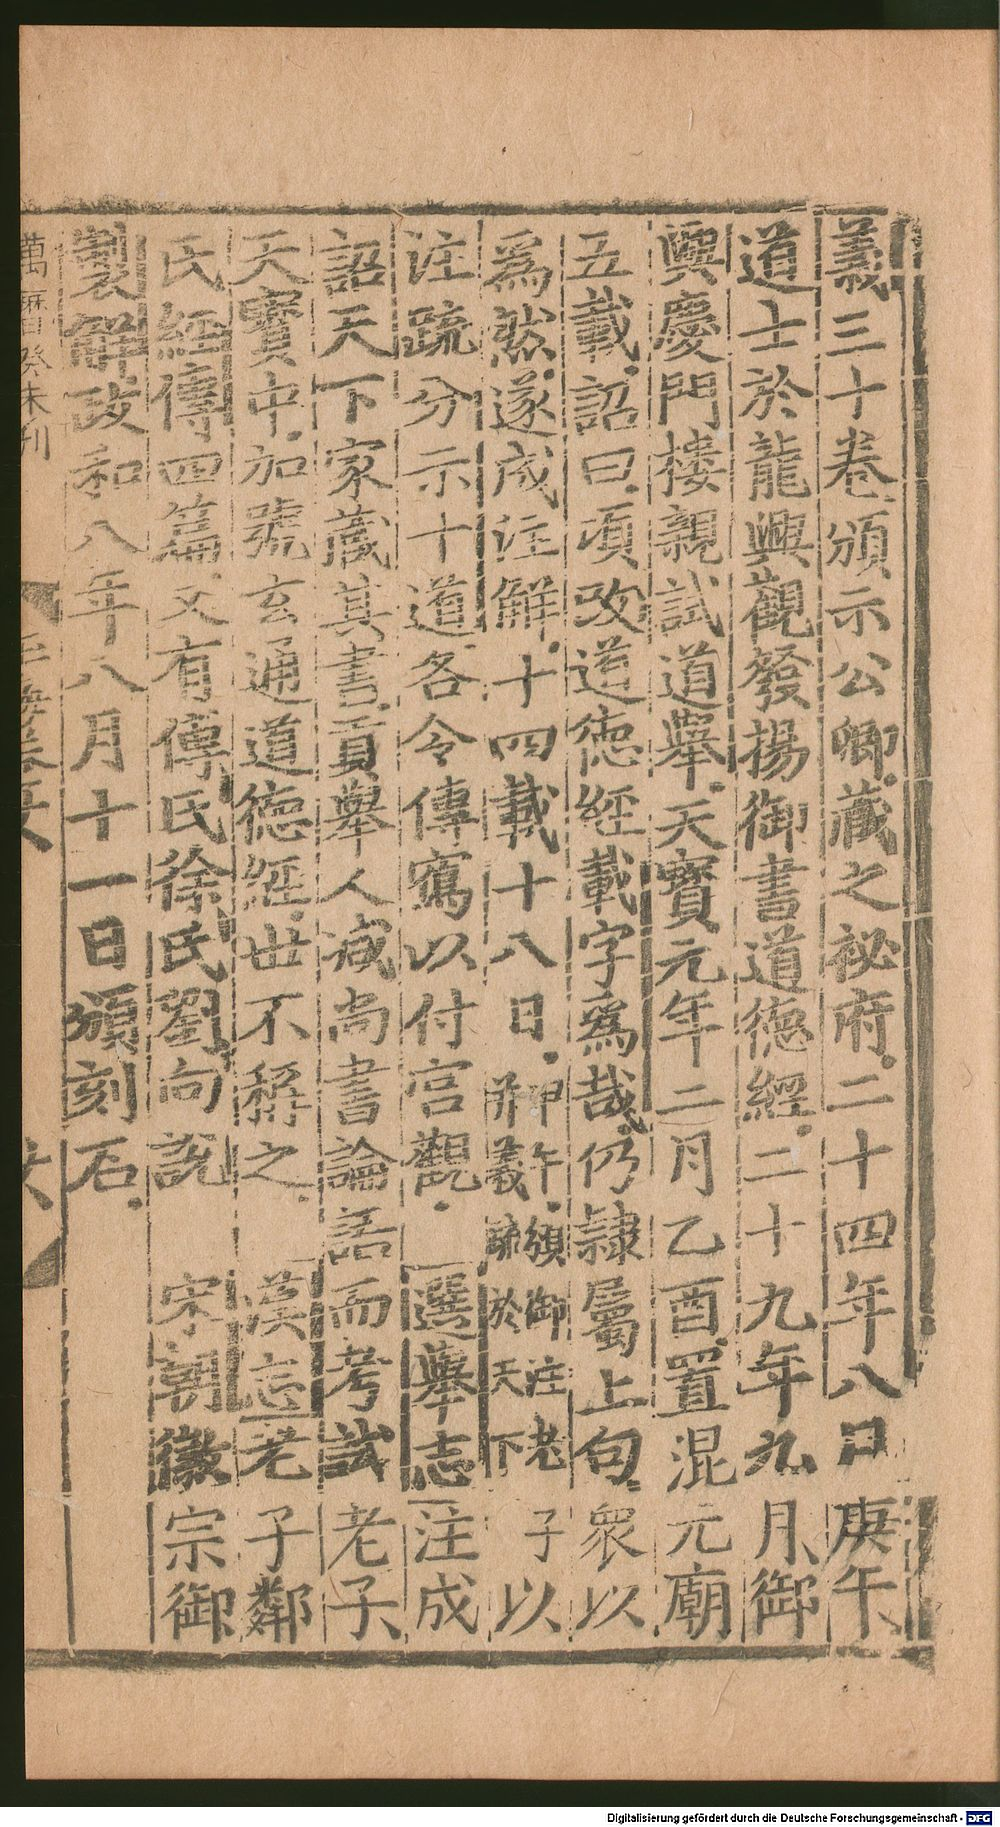 義三十卷頒示公卿藏之祕府二十四年八日庚午
道士於龍興觀發揚御書道德經二十九年九月御
興慶門樓親試道舉天寶元年二月乙酉置混元廟
五載詔曰頃改道德經載字爲哉仍隷屬上句衆以
爲然遂成注解十四載十八日甲午頒御注老子
并義䟽於天下以
注疏分示十道各令傳寫以付宫觀 選舉志注成
詔天下家藏其書貢舉人减尚書論語而考試老子
天寶中加號玄通道德經世不稱之 漢志老子鄰
氏經傳四篇又有傅氏徐氏劉向説 宋朝徽宗御
製解政和八年八月十一日頒刻石
萬曆癸未刊
Digitalisierung gefördert durch die Deutsche Forschungsgemeinschaft - DFG